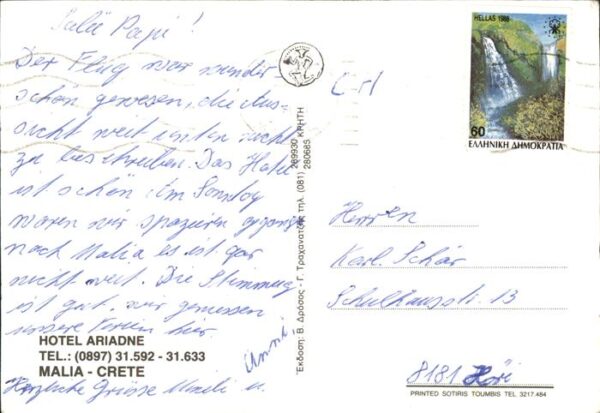 Salü Papi!
Der Flug war wunder
schön gewesen, die Aus-
sicht weit unten nicht
zu beschreiben. Das Hotel
ist schön. Im Sonntag
waren wir spazieren gegangen
nach Malia es ist gar
nicht weit. Die Stimmung
ist gut wir geniessen
unsere Ferien hier
HOTEL ARIADNE
TEL.: (0897) 31.592 - 31.633
MALIA - CRETE
Herzliche Grüsse u.
Εκδοση: Β. Δρόσος - Γ. Τραχανατζής τηλ. (081) 289930 ΚΡΗΤΗ
280685
HELLAS 1988
60
ΕΛΛΗΝΙΚΗ ΔΗΜΟΚΡΑΤΙΑ
Herren
Karl Schär
Schulhausstr. 13
8181 Höri
PRINTED SOTIRIS TOUMBIS TEL. 3217.484